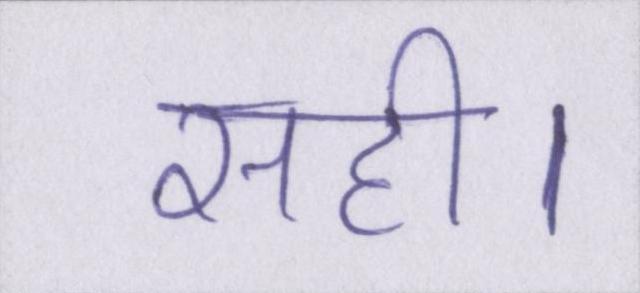 सही।